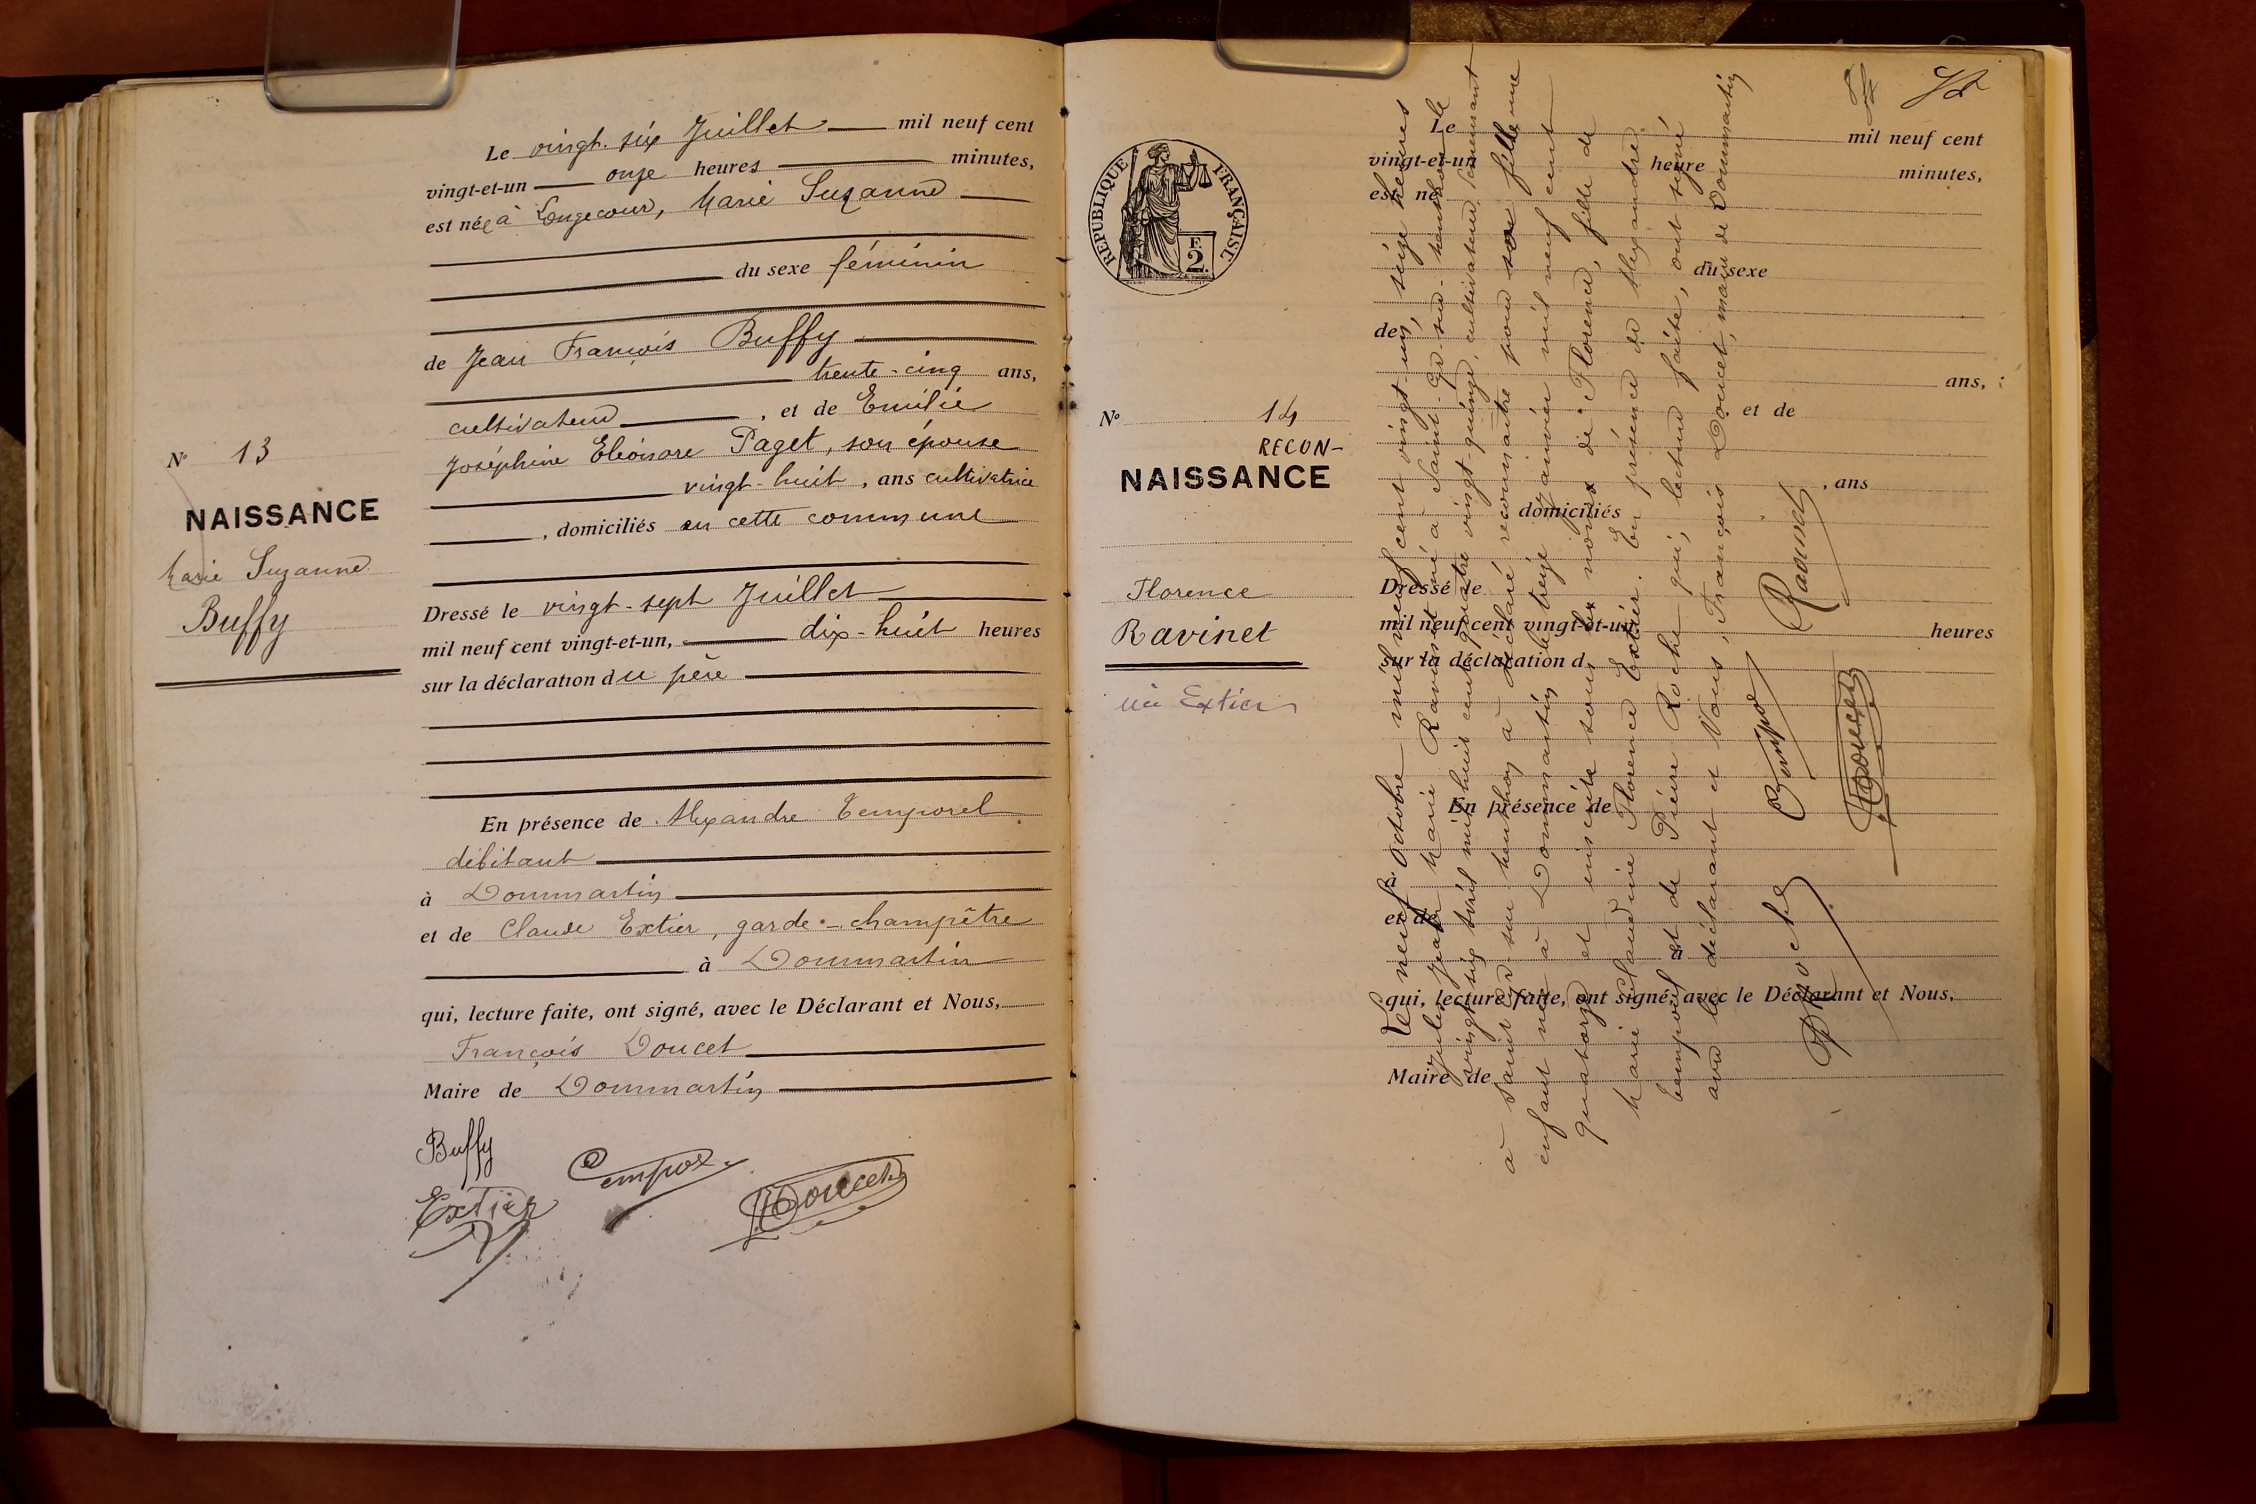 Le vingt-six Juillet mil neuf cent
vingt-et-un onze heures minutes,
est née à Longecour, Marie Suzanne
du sexe féminin
de Jean François Buffy
trente-cinq ans,
cultivateur, et de Emilie
Joséphine Eléonore Paget, son épouse
vingt-huit, ans cultivatrice
, domiciliés en cette commune
Dressé le vingt-sept Juillet
mil neuf cent vingt-et-un, dix-huit heures
sur la déclaration du père
En présence de Alexandre Temporel
débitant
à Dommartin
et de Claude Extier, garde-champêtre
à Dommartin
qui, lecture faite, ont signé, avec le Déclarant et Nous,
François Doucet
Maire de Dommartin
Buffy
Extier
Doucet
N° 13
NAISSANCE
Marie Suzanne
Buffy
RÉPUBLIQUE FRANÇAISE
F.
2
N° 14
RECON-
NAISSANCE
Florence
Ravinet
née Extier
Le mil neuf cent
vingt-et-un heure minutes,
est né
du sexe
de
ans,
et de
, ans
domiciliés
Dressé le
mil neuf cent vingt-et-un, heures
sur la déclaration d
En présence de
à
et de
à
qui, lecture faite, ont signé, avec le Déclarant et Nous,
Maire de
Le neuf Octobre mil neuf cent vingt-un, seize heures
Jules Jean Marie Ravinet né à Saint-Cyr-sur-Menthon le
vingt-six Avril mil huit cent quatre vingt-quinze, cultivateur, demeurant
à Saint Cyr-sur Menthon a déclaré reconnaître pour sa fille une
enfant née à Dommartin le treize Janvier mil neuf cent
quatorze et inscrite sous les noms de: Florence, fille de
Marie Claudine Florence Extier. En présence de Alexandre
Temporel et de Pierre Roche qui, lecture faite, ont signé
avec le déclarant et Nous, François Doucet, maire de Dommartin
Ravinet
Doucet
Roche